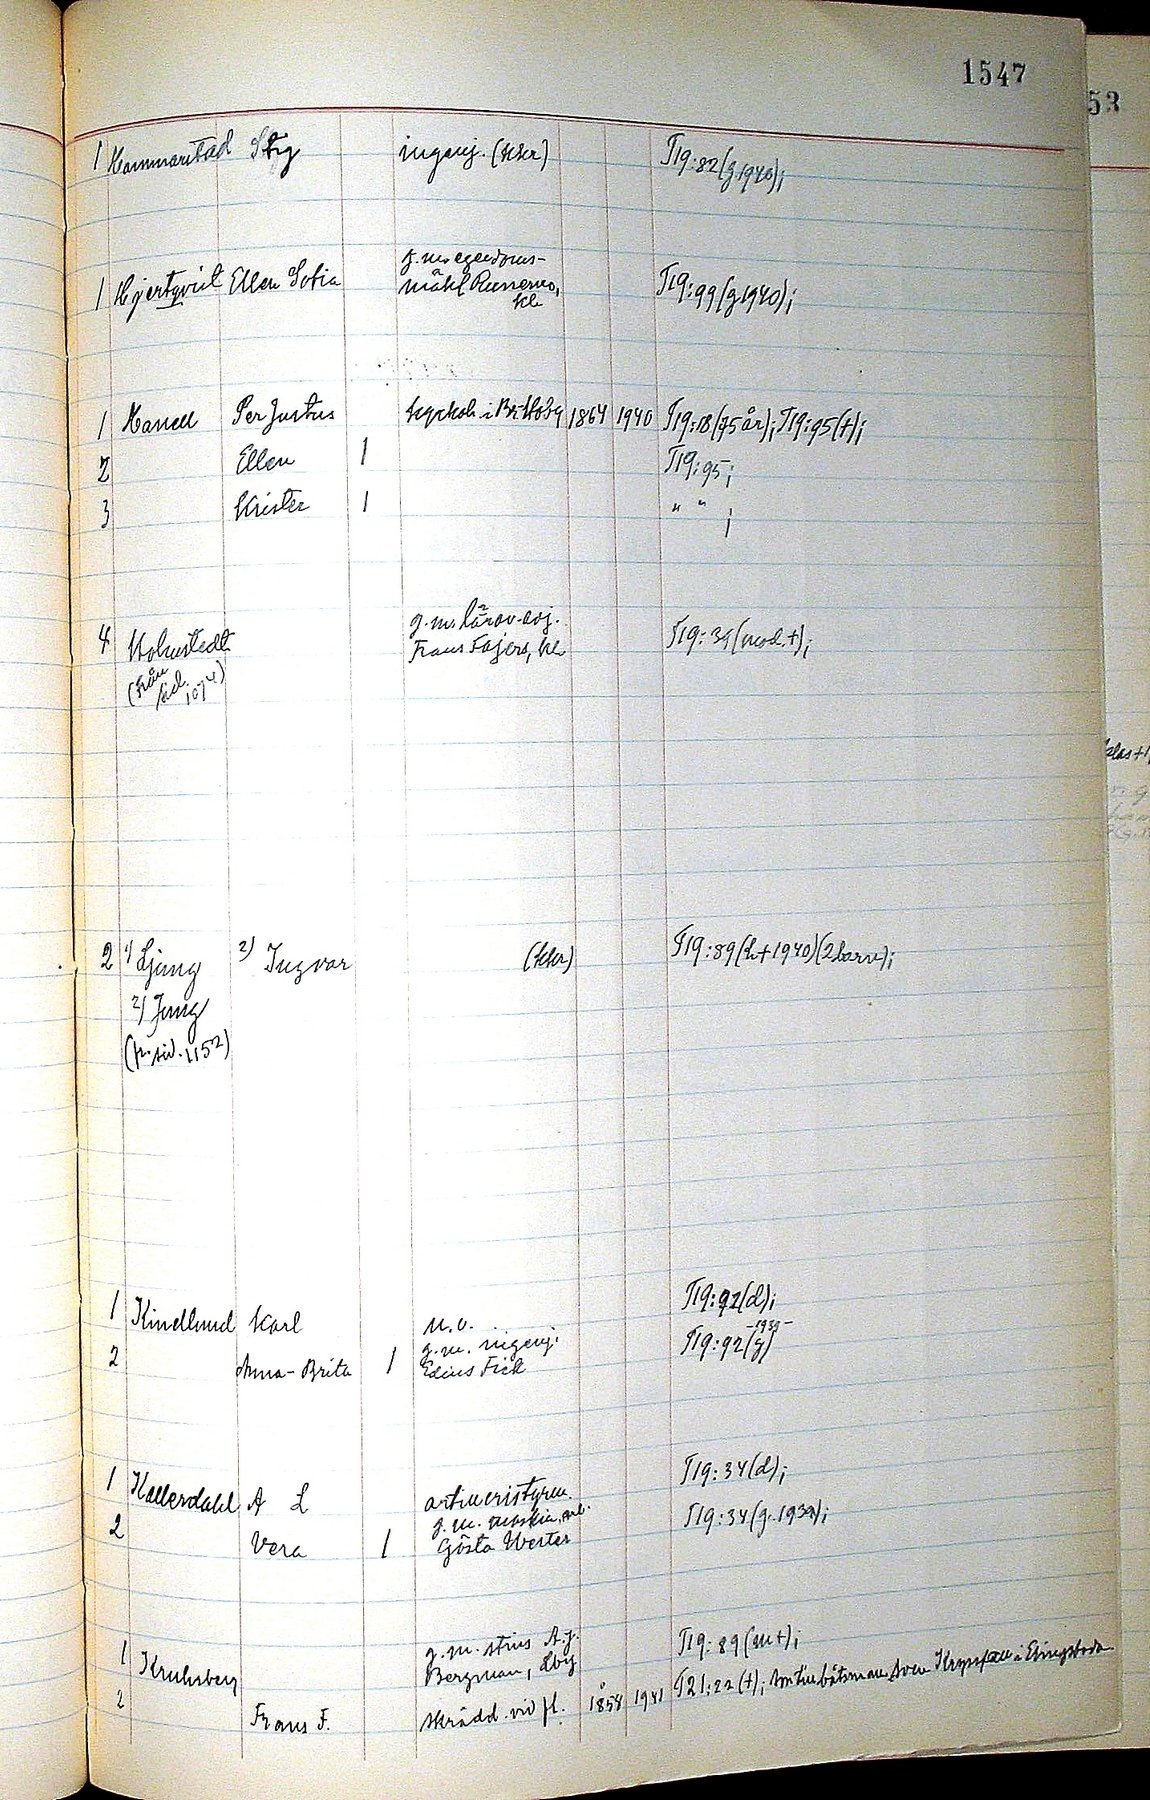 1547
53
1 Hammarstad Stig ingenj. (kkr) T19:82(g.1940);
g.m. egendoms-
1 Hjertqvist Ellen Sofia mäkl Runemo, T19:99(g.1940);
kl
1 Hanell Per Justus kyrkoh i 1864 1940 T19:18(75 år); T19:95(†);
2 Ellen 1 T19:95;
3 Krister 1 " " ;
g.m. lärov.adj.
4 Holmstedt Frans Fajers, kl T19:34(mod.†);
(från
sid. 1074)
2 1) Ljung 2) Ingvar (kkr) T19:89(h†1940)(2 barn);
2) Jung
(fr. sid. 1152)
T19:92(d);
1 Kindlund Karl u.o.
-1939-
2 Anna-Brita 1 g.m. ingenj. T19:92(g)
Edius Fick
T19:34(d);
1 Kallerdahl A L artilleristyrm
g.m. maskin. T19:34(g.1939);
2 Vera 1 Gösta Werter
g.m. A.J. T19:89(m†);
1 Kruhsberg Bergman, Kbg
2 Frans F. skrädd. vid fl. 1858 1941 T21:22(†); båtsman Sven i